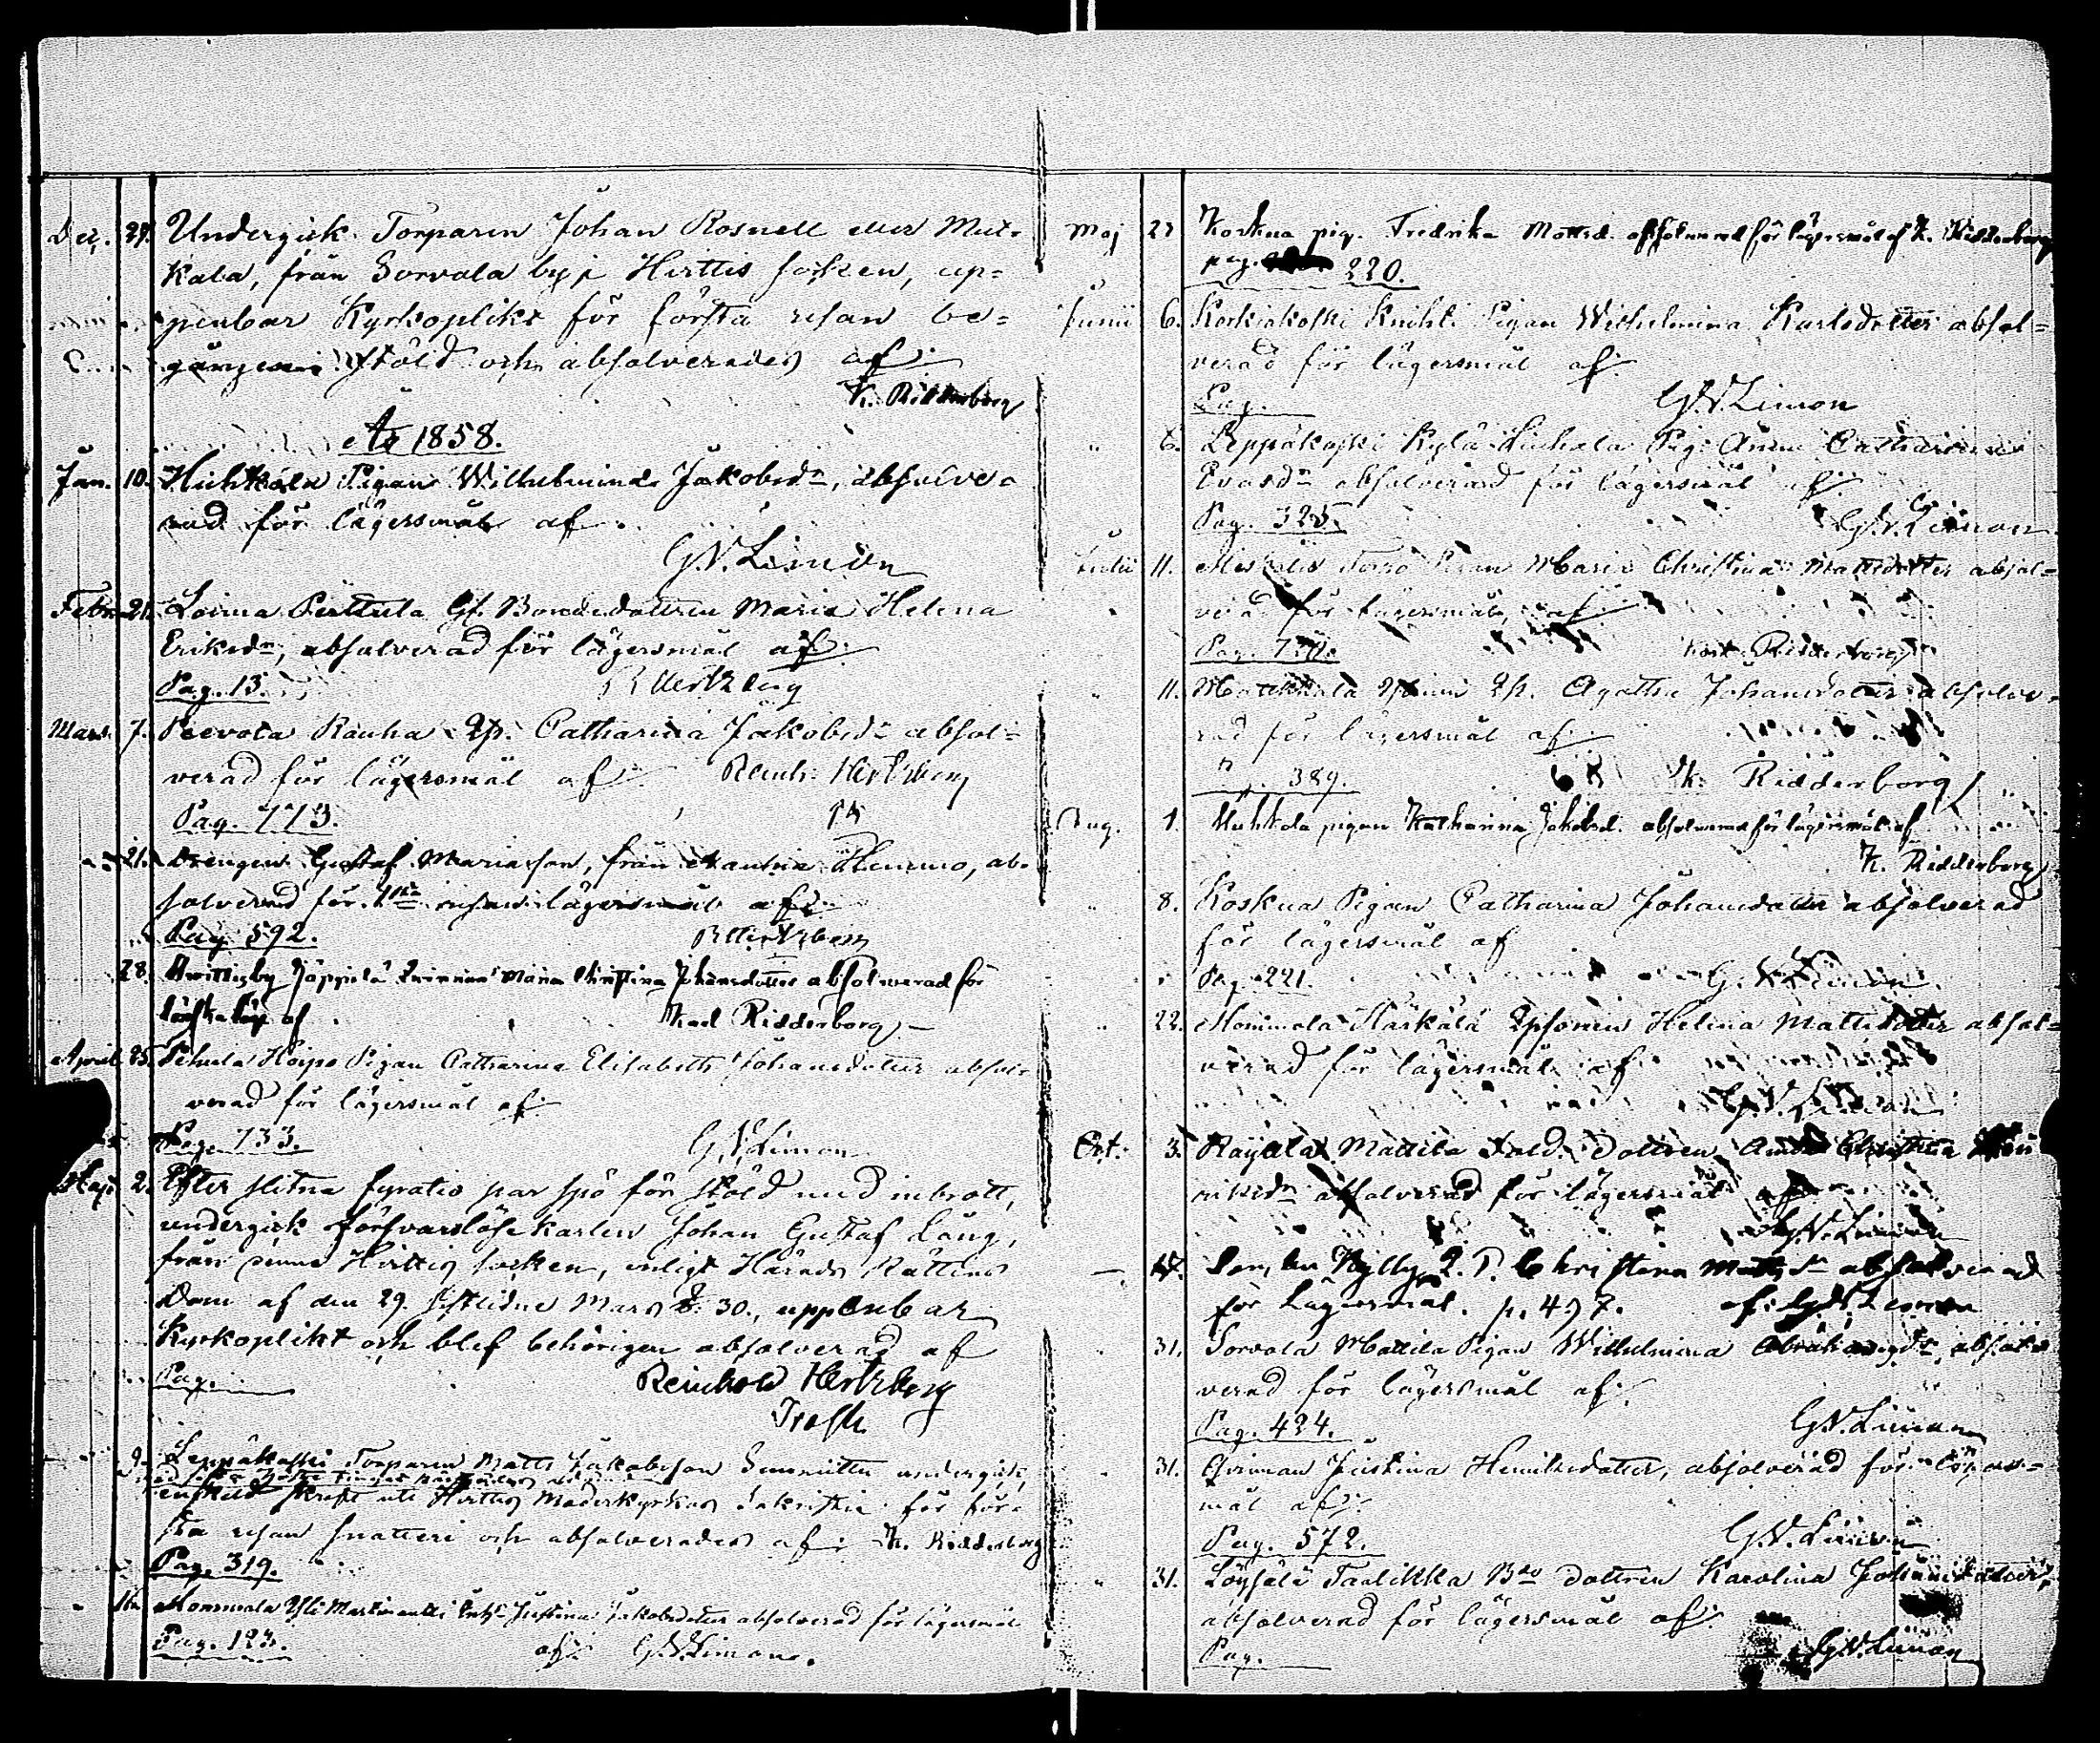 Dec. 27. Undergick Torparen Johan Rosnell eller Mut-
kala, från Sorvola by i Hirttis socken, up-
penbar Kyrkoplikt för första resan be-
gången stöld och absolverades af
K. Ridderborg
År 1858.
Jan. 10. Huhtala Pigan Wilhelmina Jakobsdr, absolve-
rad för lägersmål af
G.V. Limón
Febr. 21. Loima Perttula Gf. Bondedottren Maria Helena
Eriksdr, absolverad för lägersmål af
Pag. 13. R Hertzberg
Mars 7. Peevola Rauha Qp. Catharina Jakobsdr absol-
verad för lägersmål af Reinh. Hertzberg
Pag. 773.
21. Drengen Gustaf Mariæson, från Hennio, ab-
solverad för 1sta resan lägersmål af
Pag. 592. R Hertzberg
28. Hvittisby Jäppilä Maria Christina Johansdotter absolverad för
af Karl Ridderborg
April 25. Hoipo Pigan Catharina Elisabeth Johansdotter absol-
verad för lägersmål af
Pag. 733. G.V. Limon
Maji 2. Efter slitna fyratio par spö för stöld med inbrott,
undergick försvarslöse karlen Johan Gustaf Lång,
från denne Hvittis socken, enligt Härads Rättens
Dom af den 29. sistlidne Mars § 30., uppenbar
Kyrkoplikt och blef behörigen absolverad af
Pag. Reinhold Hertzberg
9. Leppäkoski Torparen Matts Jakobsson undergick,
enskild skrift uti Hvittis Moderkyrkas Sakristia för för-
sta resan snatteri och absolverades af: K. Ridderborg
Pag. 319.
16. Mommola Yli Martinantti Justina Jakobsdotter absolverad för lägersmål
Pag. 123. af G.V. Limon.
Maj 23 Koskua pig. Fredrika Mattsd. absolverad för lägersmål af K. Ridderborg
pag. 220.
Junii 6. Korkiakoski Knihti Pigan Wilhelmina Karlsdotter absol-
verad för lägersmål af
Pag. G.V. Limon
" 6. Leppäkoski Kylä Pig. Anna Catharina
Evasdr absolverad för lägersmål af
Pag. 325. G.V. Limon
Julii 11. Maria Christina Mattsdotter absol-
verad för lägersmål, af
Pag. Ridderborg
" 11. Qp. Agatha Johansdotter absolve-
rad för lägersmål af
p. 389. K. Ridderborg
Aug. 1. Huhtala pigan Katharina Jakobsd. absolverad för lägersmål af
K. Ridderborg
" 8. Koskua Pigan Catharina Johansdotter absolverad
för lägersmål af
Pag. 221. G.V. Limon.
" 22. Mommola Härkälä Qpsonen Helena Mattsdotter absol-
verad för lägersmål af
G.V. Limon
Oct. 3. Raijala Mattila dottren Anna Christina
riksdr absolverad för lägersmål af
G.V. Limon
17. Kylly Q.P. Christina Matsdr absolverad
för Lägersmål. p. 497. af: G.V. Limon
31. Sorvola Mattila Pigan Wilhelmina Abrahamsdr, absol-
verad för lägersmål af
Pag. 424. G.V. Limon
" 31. Qvinnan Justina Henriksdotter, absolverad för lägers-
mål af
Pag. 572. G.V. Limon
" 31. Löysälä Taulikka Bde dottren Karolina Johansdotter,
absolverad för lägersmål af
Pag. G.V. Limon